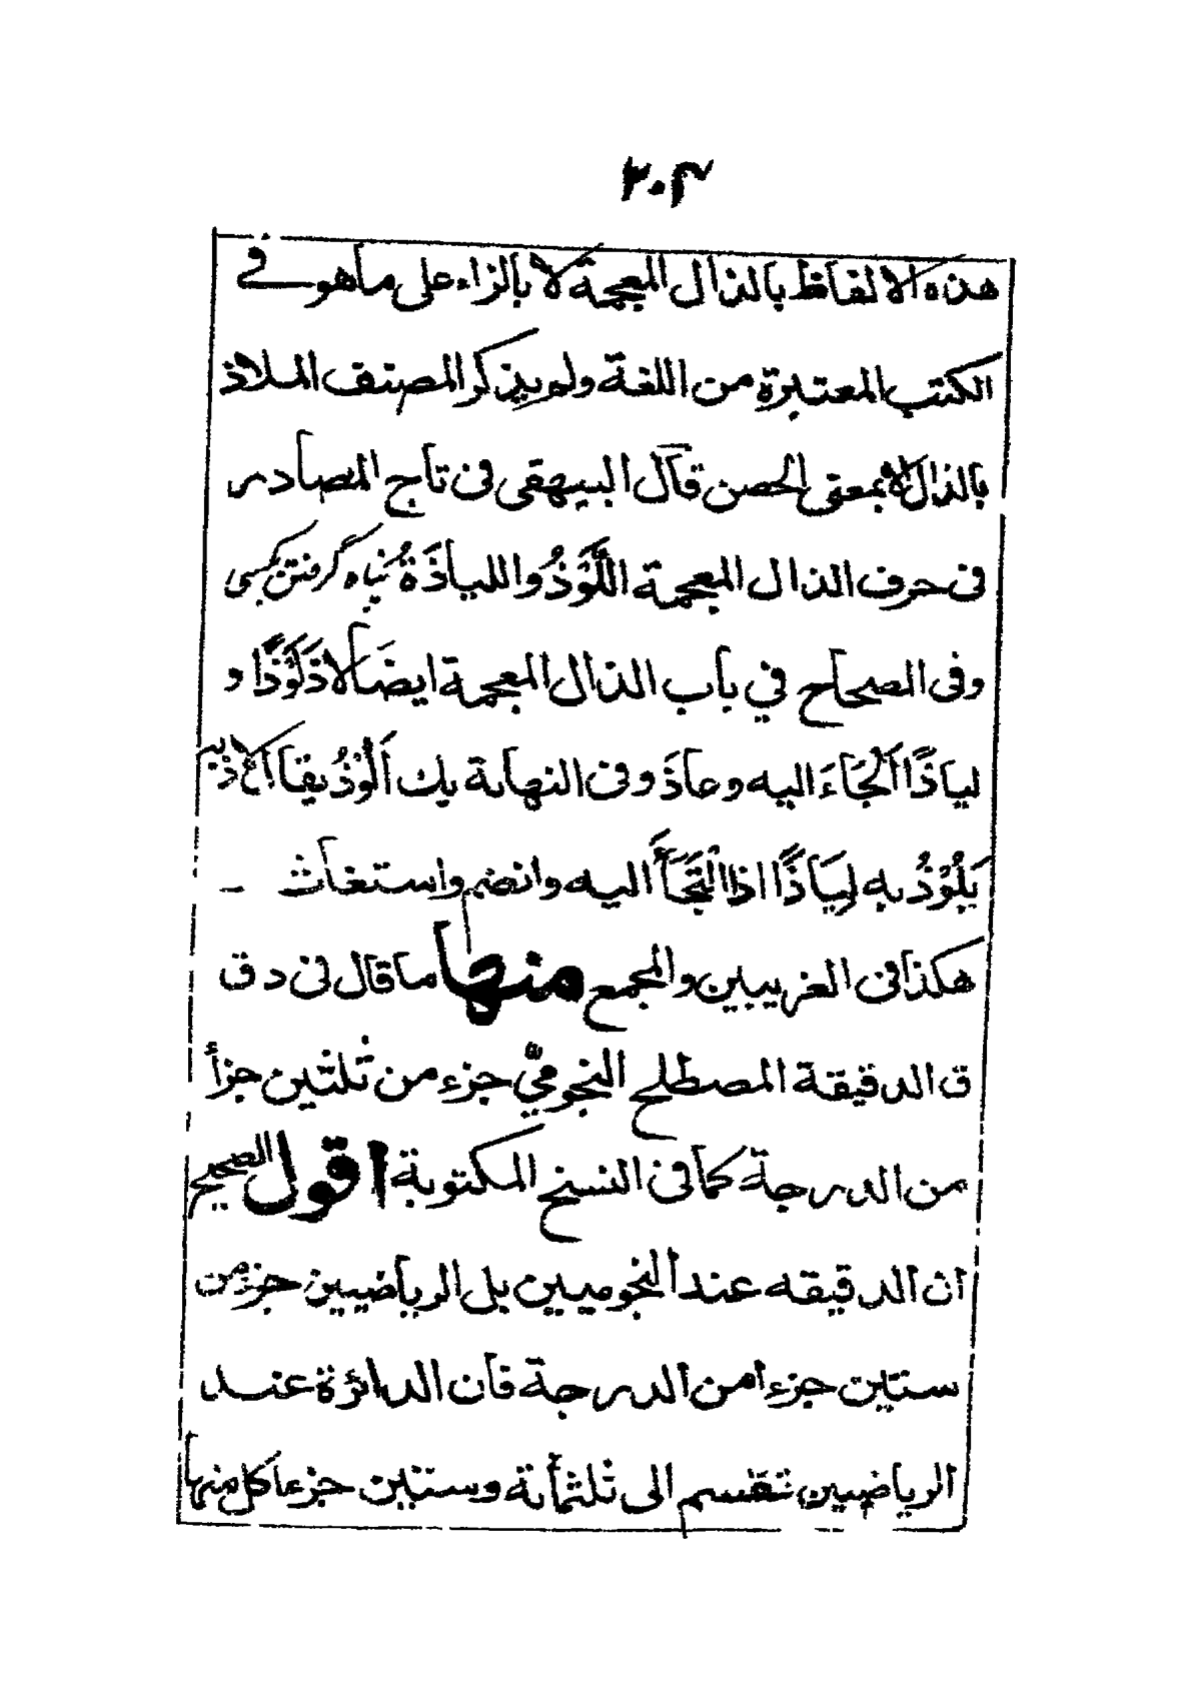 ٣٠٤
هذه الالفاظ بالذال المعجمة لا بالزاء على ماهو في
الكتب المعتبرة من اللغة ولم يذكر المصنف الملاذ
بالذال الا بمعنى الحصن قال البيهقى فى تاج المصادر
فى حرف الذال المعجمة اللَّوْذُ واللياذَةُ پناه گرفتن بكسى
وفى الصحاح في باب الذال المعجمة ايضا لاذ لَوْذًا و
لياذًا الْجَاءَ اليه وعاذَ وفى النهاية بك اَلُوْذُ يقال لاذ به
يَلُوْذُ به لِيَاذًا اذا الْتَجَأَ اليه وانضم واستغاث
هكذا فى الغريبين والمجمع منها ما قال فى د ق
ق الدقيقة المصطلح النجوميّ جزء من ثلثين جزأ
من الدرجة كما فى النسخ المكتوبة اقول الصحيح
ان الدقيقه عند النجوميين بل الرياضيين جزء من
ستين جزءا من الدرجة فان الدائرة عند
الرياضيين تنقسم الى ثلثمأئة وستين جزءا كل منها